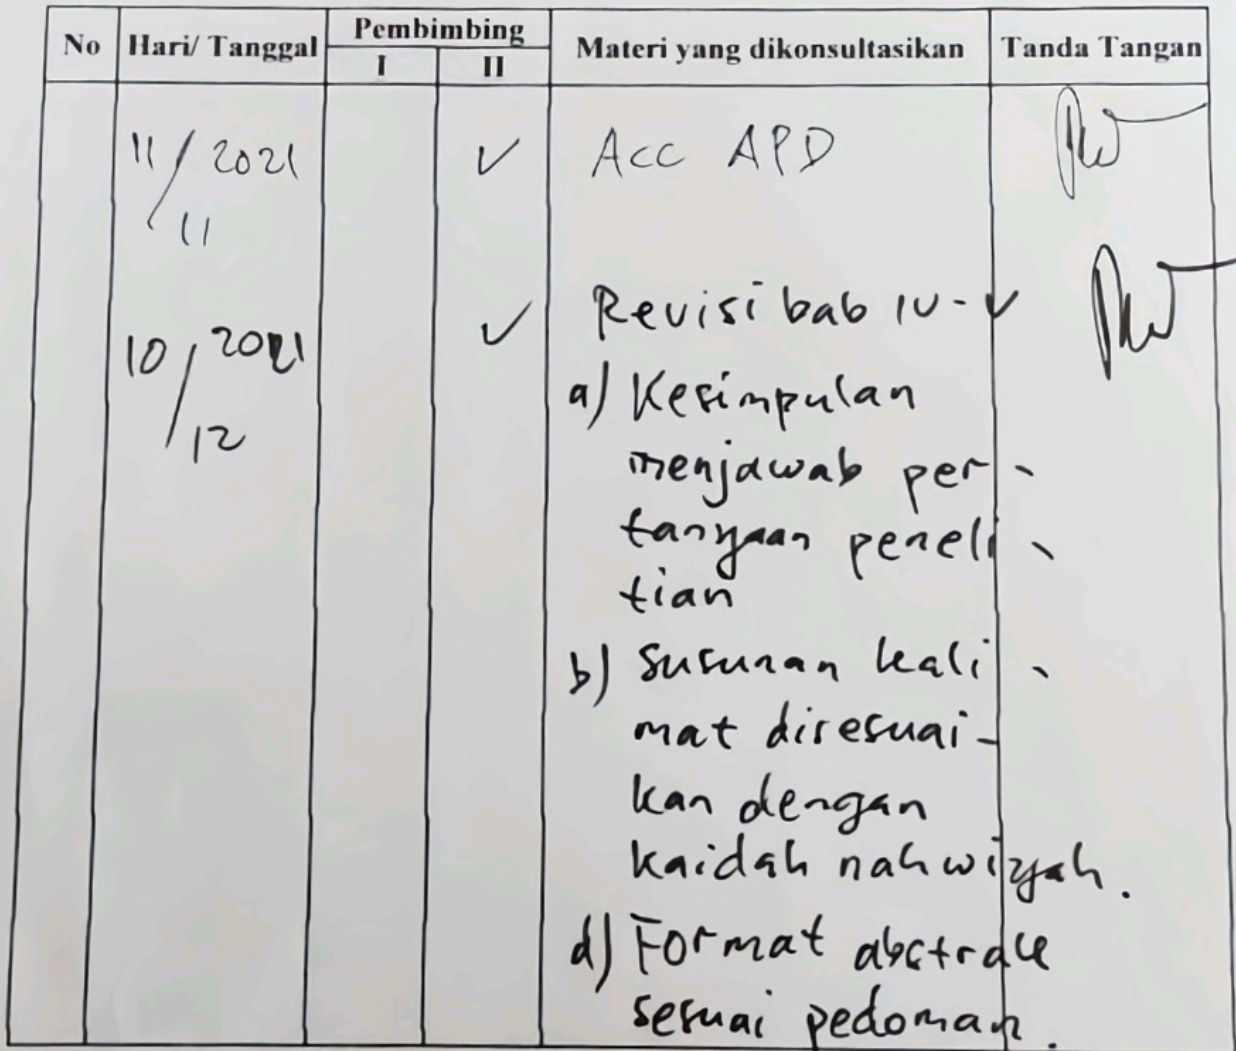 No Hari/ Tanggal Pembimbing Materi yang dikonsultasikan Tanda Tangan
I II
11/2021 ✓ Acc APD
11
Revisi bab IV - V
10/2021 ✓
12
a) Kesimpulan
menjawab per -
tanyaan peneli -
tian
b) Susunan kali -
mat disesuai -
kan dengan
kaidah nahwiyah.
d) Format abstrak
sesuai pedoman.